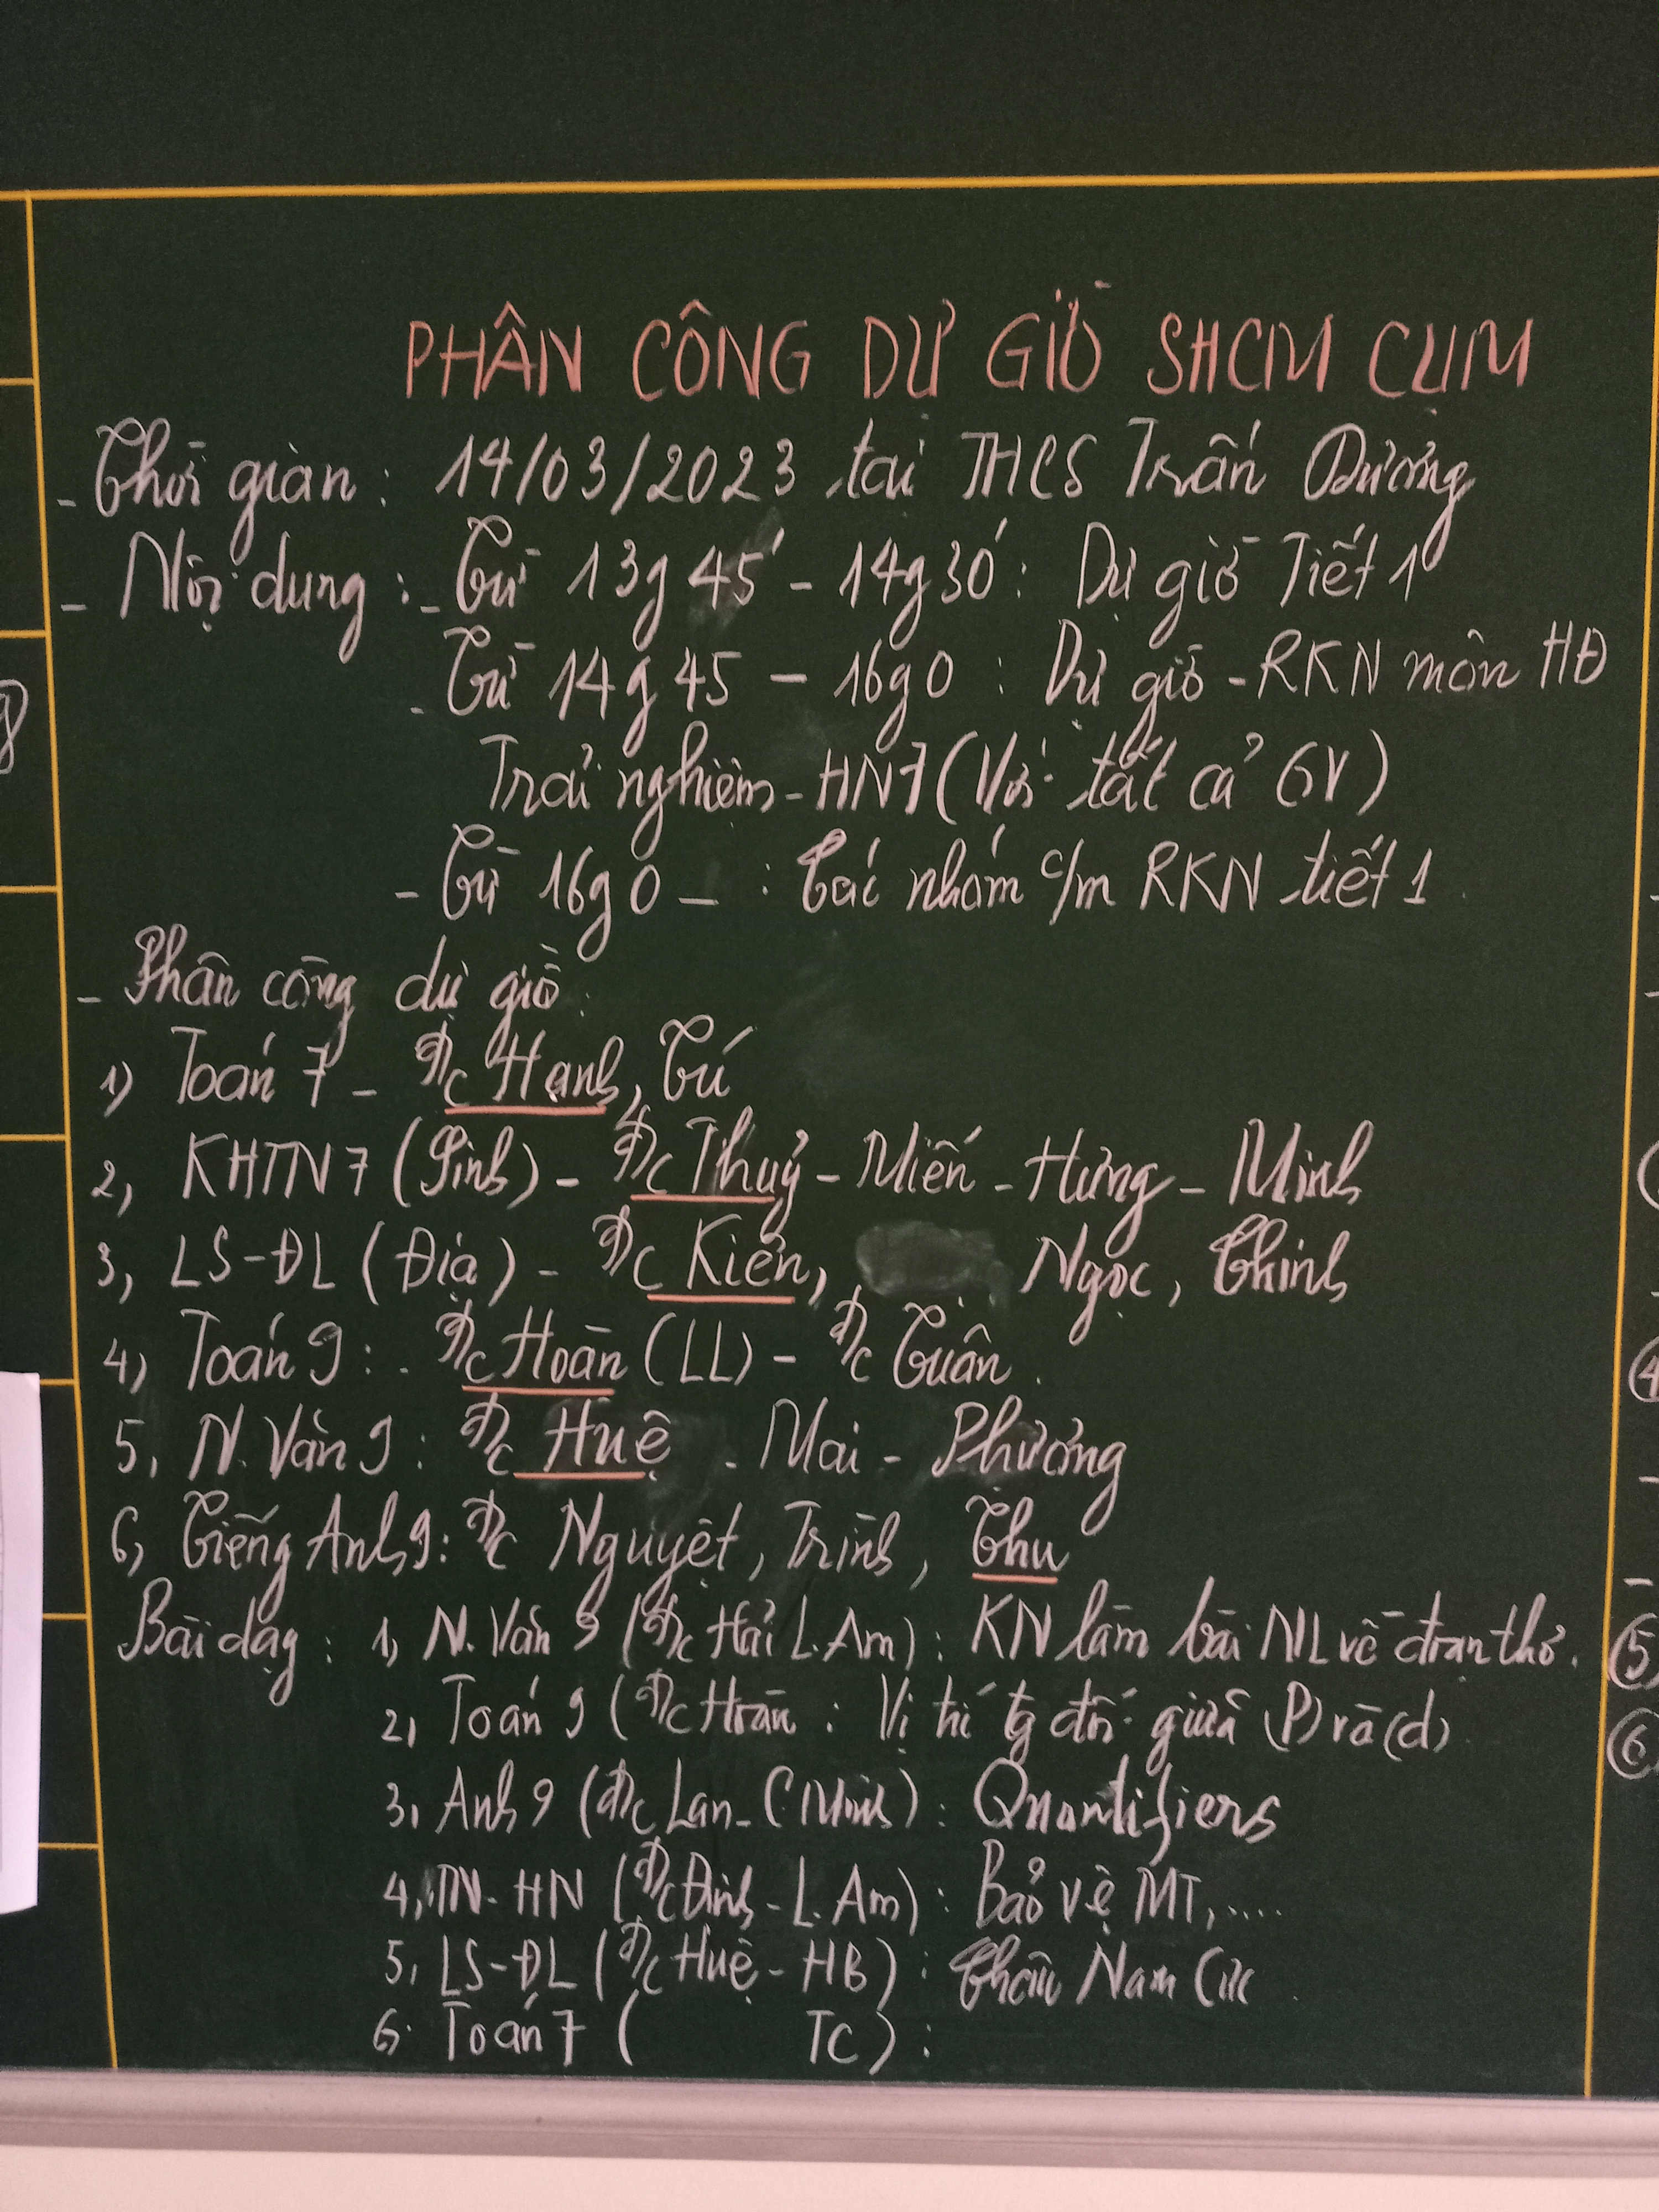 PHÂN CÔNG DỰ GIỜ SHCM CỤM
- Thời gian: 14/03/2023 tại THCS Trấn Dương
- Nội dung: - Từ 13g45' - 14g30': Dự giờ Tiết 1
- Từ 14g45 - 16g0 : Dự giờ - RKN môn HĐ
Trải nghiệm - HN7 (Với tất cả GV)
- Từ 16g0 - : Các nhóm c/m RKN tiết 1.
- Phân công dự giờ:
1) Toán 7 - Đ/c Hạnh, Tú
2, KHTN7 (Sinh) - Đ/c Thuỷ - Miến - Hưng - Minh
3, LS-ĐL (Địa) - Đ/c Kiên, Ngọc, Thinh
4) Toán 9: - Đ/c Hoàn (LL) - Đ/c Tuân.
5, N. Văn 9: Đ/c Huệ - Mai - Phương
6, Tiếng Anh 9: Đ/c Nguyệt, Trình, Thu
Bài dạy: 1, N. Văn 9 (Đ/c Hải L.Am): KN làm bài NL về đoạn thơ.
2, Toán 9 (Đ/c Hoàn : Vị trí tg đối giữa (P) và (d)
3, Anh 9 (Đ/c Lan - C Minh): Quantifiers
4, TN-HN (Đ/c Đinh - L.Am): Bảo vệ MT,....
5, LS-ĐL (Đ/c Huệ - HB): Châu Nam Cực.
6. Toán 7 ( TC):
④
⑤
⑥